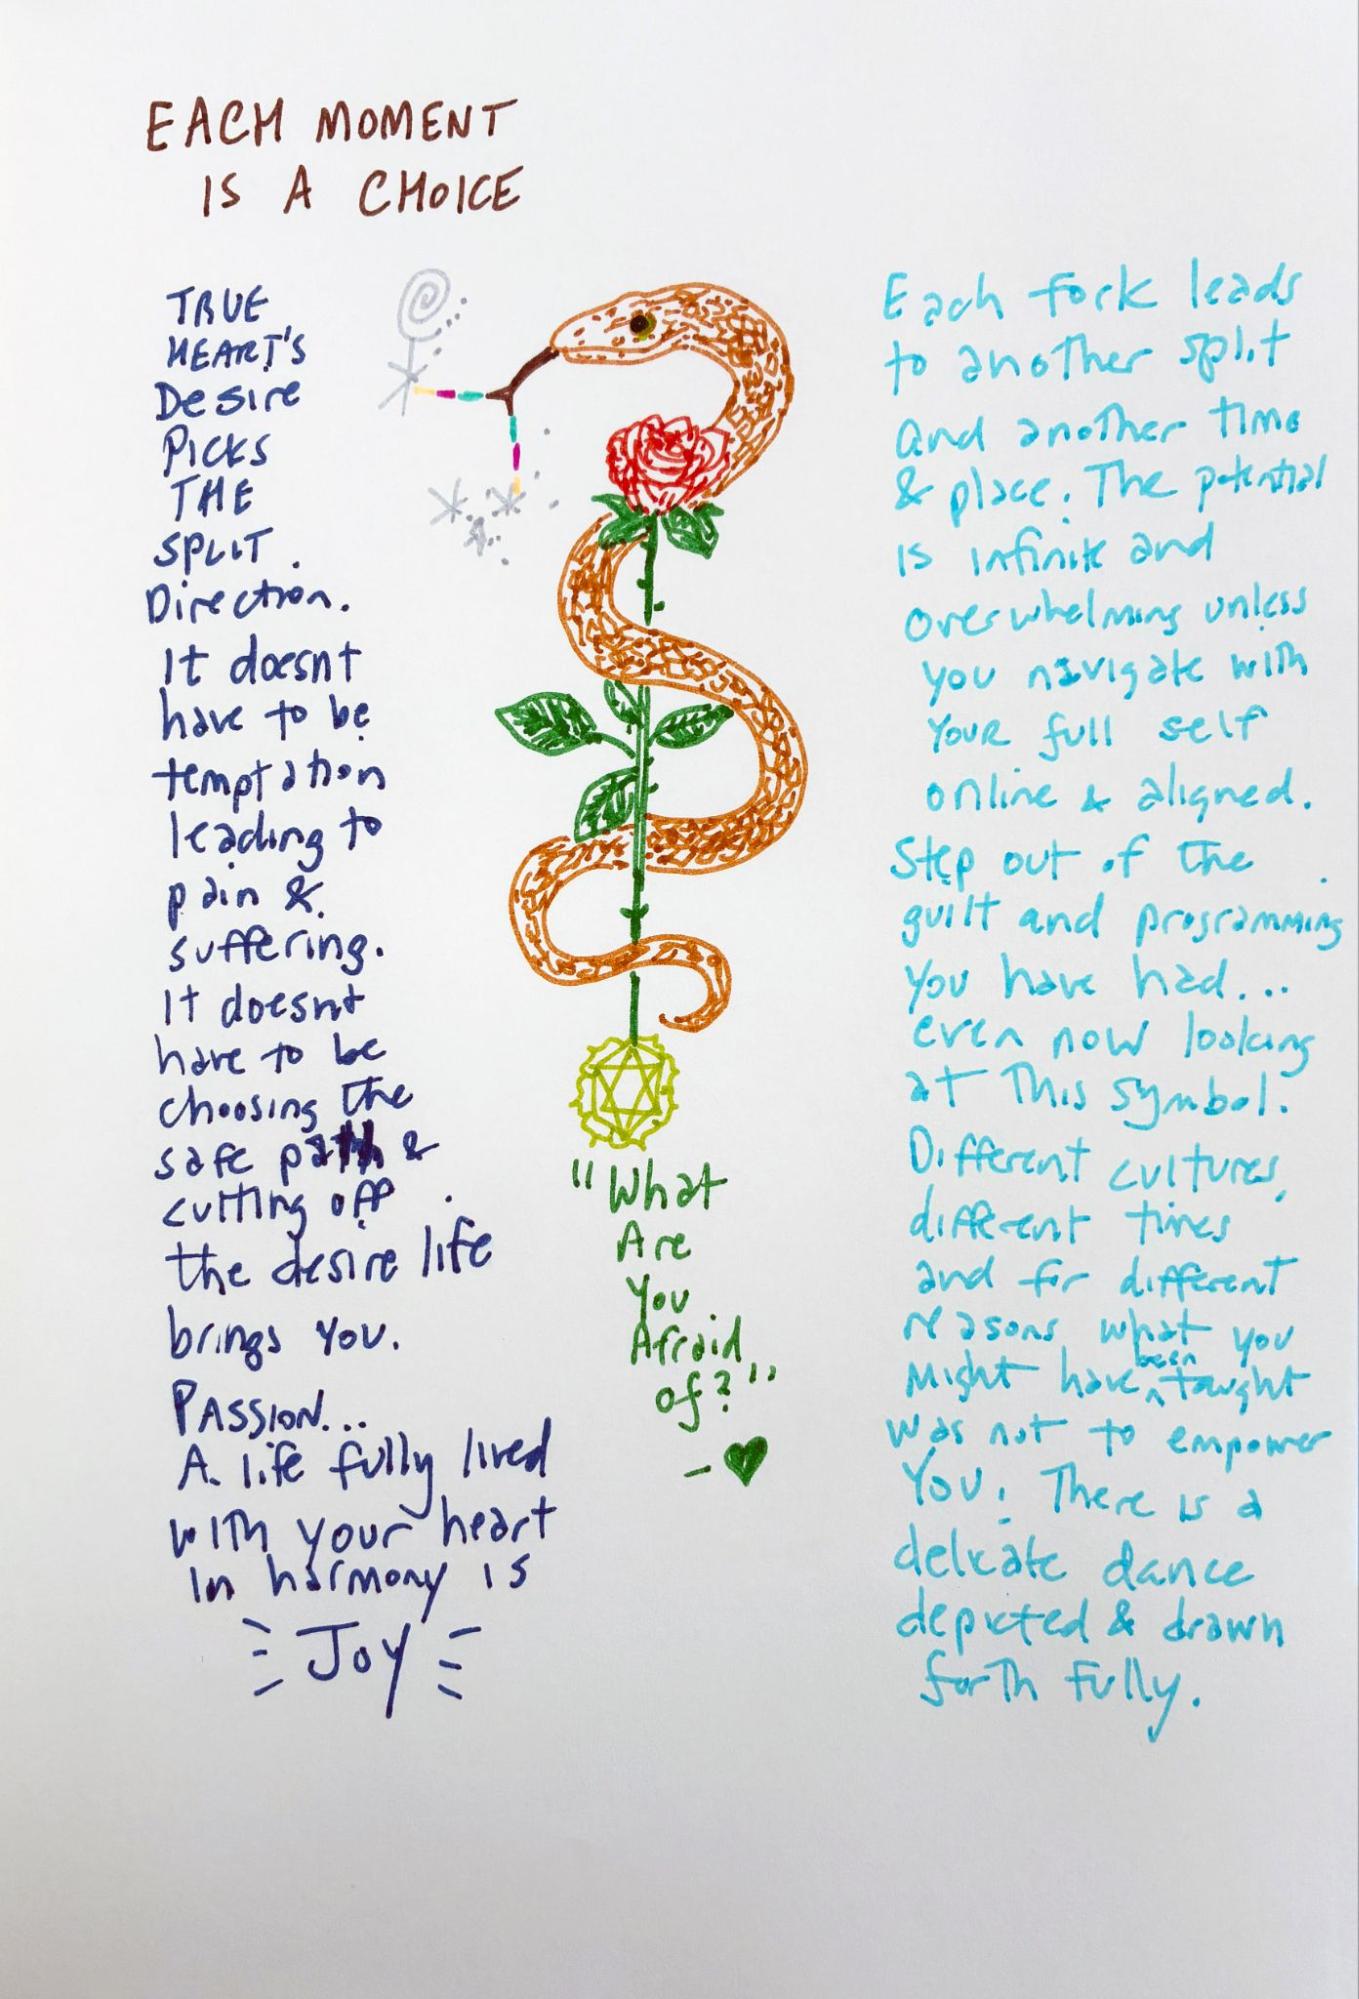 EACH MOMENT
IS A CHOICE
TRUE
HEART'S
Desire
PICKS
THE
SPLIT
Direction.
It doesnt
have to be
temptation
leading to
pain &
suffering.
It doesnt
have to be
choosing the
safe path &
cutting off
the desire life
brings you.
PASSION...
A life fully lived
with your heart
in harmony is
JOY
"What
Are
You
Afraid
of?"
- ♥
Each fork leads
to another split
and another time
& place. The potential
is infinite and
overwhelming unless
you navigate with
your full self
online & aligned.
Step out of the
guilt and programming
you have had...
even now looking
at this symbol.
Different cultures,
different times
and for different
reasons what you
might have been taught
was not to empower
You. There is a
delicate dance
depicted & drawn
forth fully.